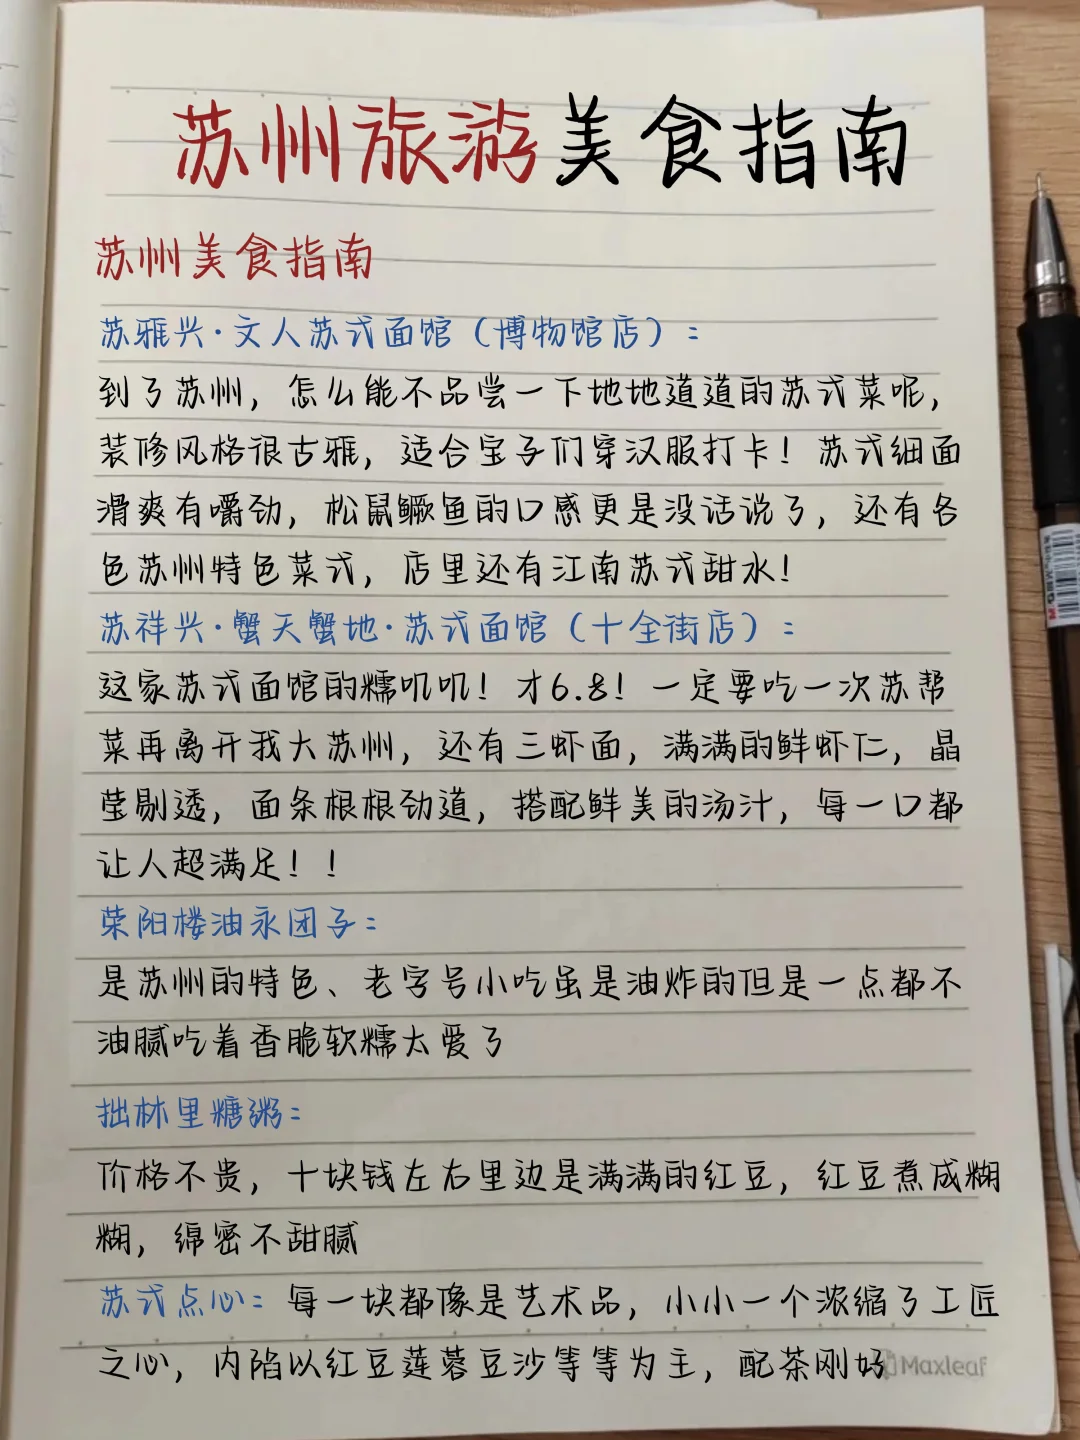 苏州旅游美食指南
苏州美食指南
苏雅兴·文人苏式面馆（博物馆店）：
到了苏州，怎么能不品尝一下地地道道的苏式菜呢，
装修风格很古雅，适合宝子们穿汉服打卡！苏式细面
滑爽有嚼劲，松鼠鳜鱼的口感更是没话说了，还有各
色苏州特色菜式，店里还有江南苏式甜水！
苏祥兴·蟹天蟹地·苏式面馆（十全街店）：
这家苏式面馆的糯叽叽！才6.8！一定要吃一次苏帮
菜再离开我大苏州，还有三虾面，满满的鲜虾仁，晶
莹剔透，面条根根劲道，搭配鲜美的汤汁，每一口都
让人超满足！！
荣阳楼油氽团子：
是苏州的特色、老字号小吃虽是油炸的但是一点都不
油腻吃着香脆软糯太爱了
拙林里糖粥：
价格不贵，十块钱左右里边是满满的红豆，红豆煮成糊
糊，绵密不甜腻
苏式点心：每一块都像是艺术品，小小一个浓缩了工匠
之心，内陷以红豆莲蓉豆沙等等为主，配茶刚好
Maxleaf